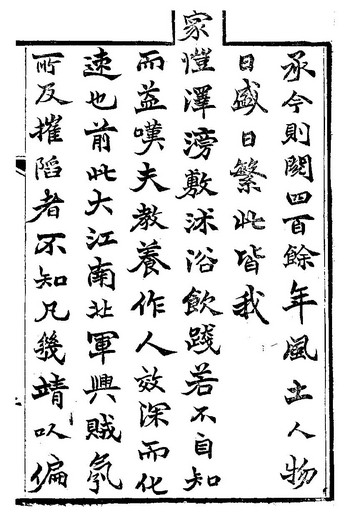 承今則閱四百餘年風土人物
日盛日繁此皆我
家愷澤滂敷沐浴飲踐若不自知
而益嘆夫教養作人效深而化
速也前此大江南北軍興賊氛
所及摧陷者不知凡幾靖以偏